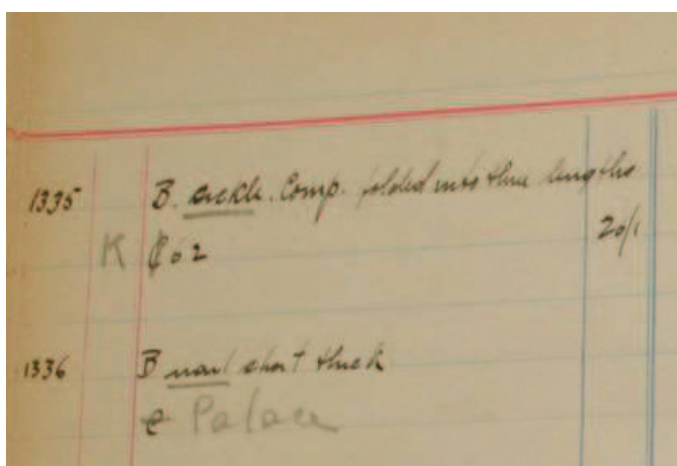 1335 B. sickle. Comp. folded into three lengths
K ¢ 62 20/1
1336 B nail short thick
e Palace